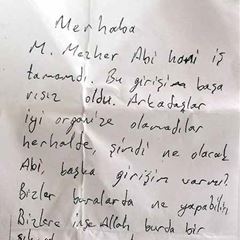 Merhaba
M. Mezher Abi hani iş
tamamdı. Bu girişim başa
rısız oldu. Arkadaşlar
iyi organize olamadılar
herhalde, şimdi ne olacak
Abi, başka girişim varmı?
Bizler buralarda ne yapabilir
Bizlere inşeAllah burda bir